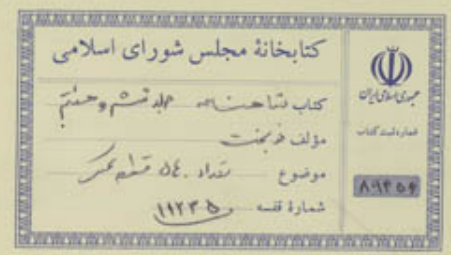 کتابخانهٔ مجلس شورای اسلامی
کتاب شاهنامه جلد ششم و هشتم
مؤلف
موضوع تعداد ۵۴۰ قطعه عکس
شمارهٔ قفسه ۱۹۲۳۵
جمهوری اسلامی ایران
شماره ثبت کتاب
۸۹۴۵۶